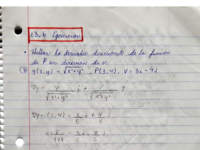 13.6 Ejercicios
Hallar la derivada direccional de la función
de P en dirección de v.
g(x,y) = √x²+y², P(3,4), v = 3i - 4j
∇g = x/√x²+y² i + y/√x²+y² j
∇g(3,4) = 3/5 i + 4/5 j